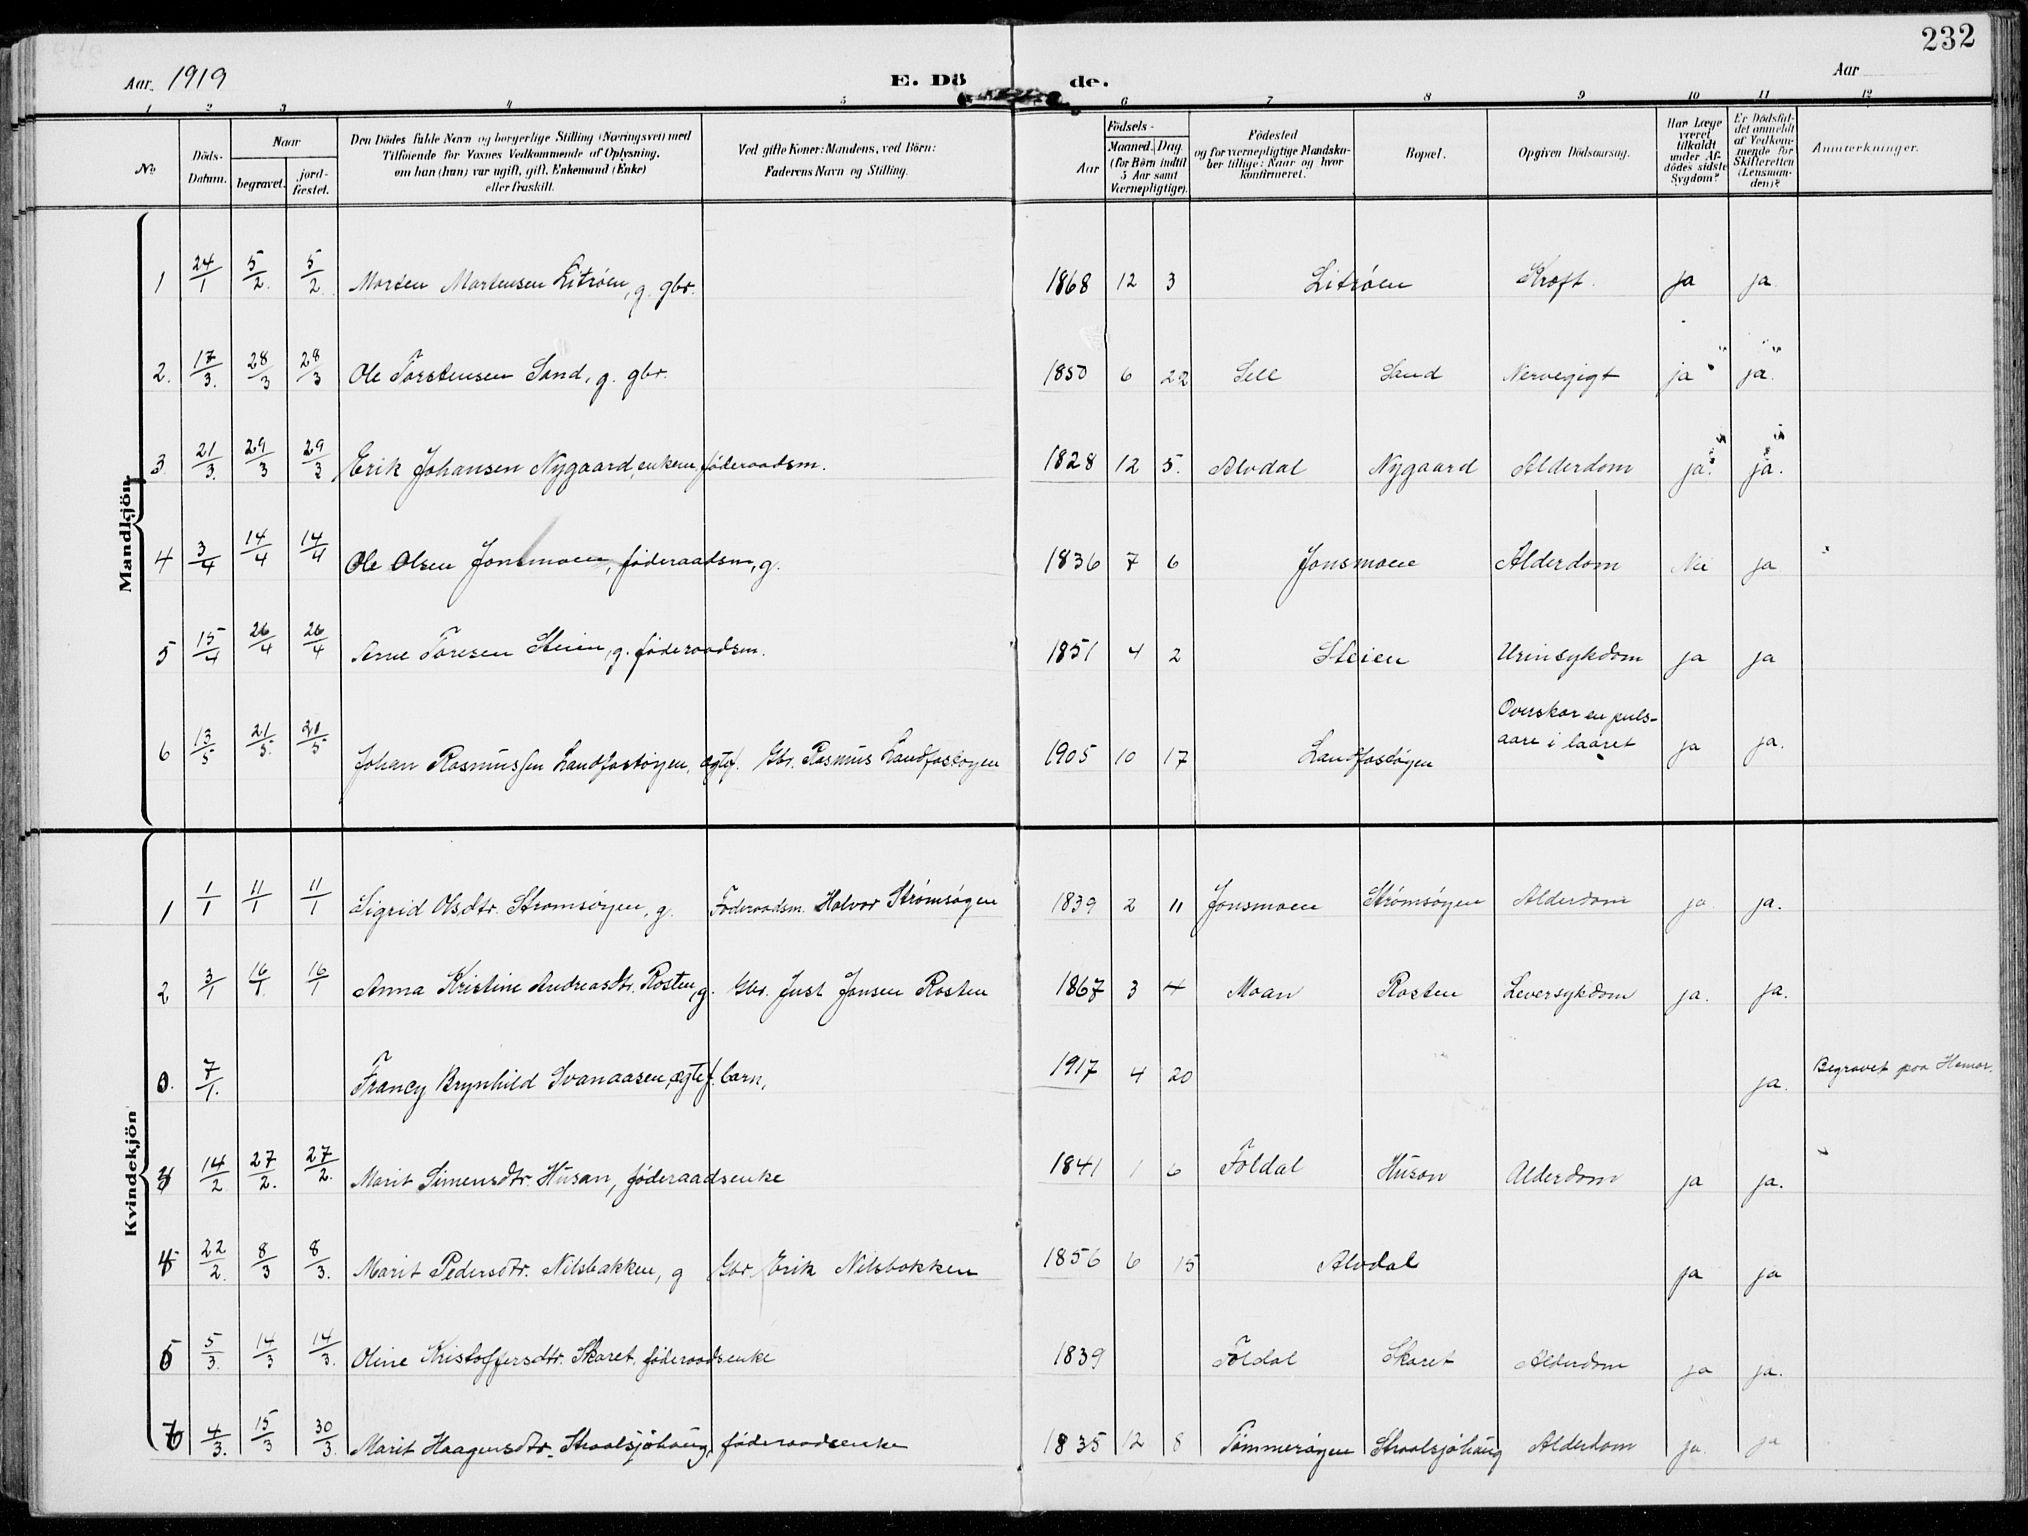 232
Aar 1919 E. Dö de. Aar
1 2 3 4 5 6 7 8 9 10 11 12
No. Döds-Datum. Naar begravet. jord-fæstet. Den Dödes fulde Navn og borgerlige Stilling (Næringsvei) med Tilföiende for Voxnes Vedkommende af Oplysning, om han (hun) var ugift, gift, Enkemand (Enke) eller fraskilt. Ved gifte Koner: Mandens, ved Börn: Faderens Navn og Stilling. Födsels- Aar Maaned. Dag. (for Börn indtil 5 Aar samt Værnepligtige). Födested og for værnepligtige Mandskaber tillige: Naar og hvor konfirmeret. Bopæl. Opgiven Dödsaarsag. Har Læge været tilkaldt under Afdödes sidste Sygdom? Er Dödsfaldet anmeldt af Vedkommende for Skifteretten (Lensmanden)? Anmærkninger.
Mandkjön.
1 24/1 5/2 5/2 Morten Martensen Litrøen, g. gbr. 1868 12 3 Litrøen Kræft. ja ja
2. 17/3. 28/3 28/3 Ole Torstensen Sand, g. gbr. 1850 6 22 Sell Sand Nervegigt ja ja.
3 21/3. 29/3 29/3 Erik Johansen Nygaard, enkem, føderaadsm. 1828 12 5. Alvdal Nygaard Alderdom ja. ja.
4 3/4 14/4 14/4 Ole Olsen Jonsmoen, føderaadsm, g. 1836 7 6 Jonsmoen Alderdom Nei ja
5 15/4 26/4 26/4 Arne Toresen Steien, g. føderaadsm. 1851 4 2 Steien Urinsykdom ja ja
6 13/5 21/5. 21/5 Johan Rasmussen Landfastøyen, ægtef. Gbr. Rasmus Landfastøyen 1905 10 17 Landfastøyen Overskar en puls-
aare i laaret ja ja.
Kvindekjön.
1 1/1 11/1 11/1 Sigrid Olsdtr. Strømsøyen, g. Føderaadsm. Halvor Strømsøyen 1839 2 11 Jonsmoen Strømsøyen Alderdom ja ja.
2 3/1 16/1. 16/1 Anna Kristine Andreasdtr. Rosten, g. Gbr. Just Jonsen Rosten 1867 3 4 Moan Rosten Leversykdom ja. ja.
0. 7/1. Francy Brynhild Svanaasen, ægtef. barn, 1917 4 20 ja. Begravet paa Hamar.
3 14/2 27/2. 27/2. Marit Simensdtr. Husan, føderaadsenke 1841 1 6 Foldal Husan Alderdom ja ja.
4 22/2. 8/3 8/3. Marit Pedersdtr. Nilsbakken, g Gbr. Erik Nilsbakken 1856 6 15 Alvdal ja ja
5 5/3. 14/3 14/3. Oline Kristoffersdtr. Skaret, føderaadsenke 1839 Foldal Skaret Alderdom ja ja.
6 4/3. 15/3 30/3. Marit Haagensdtr. Straalsjøhaug, føderaadsenke 1835 12 8 Tømmerøyen Straalsjøhaug Alderdom ja. ja